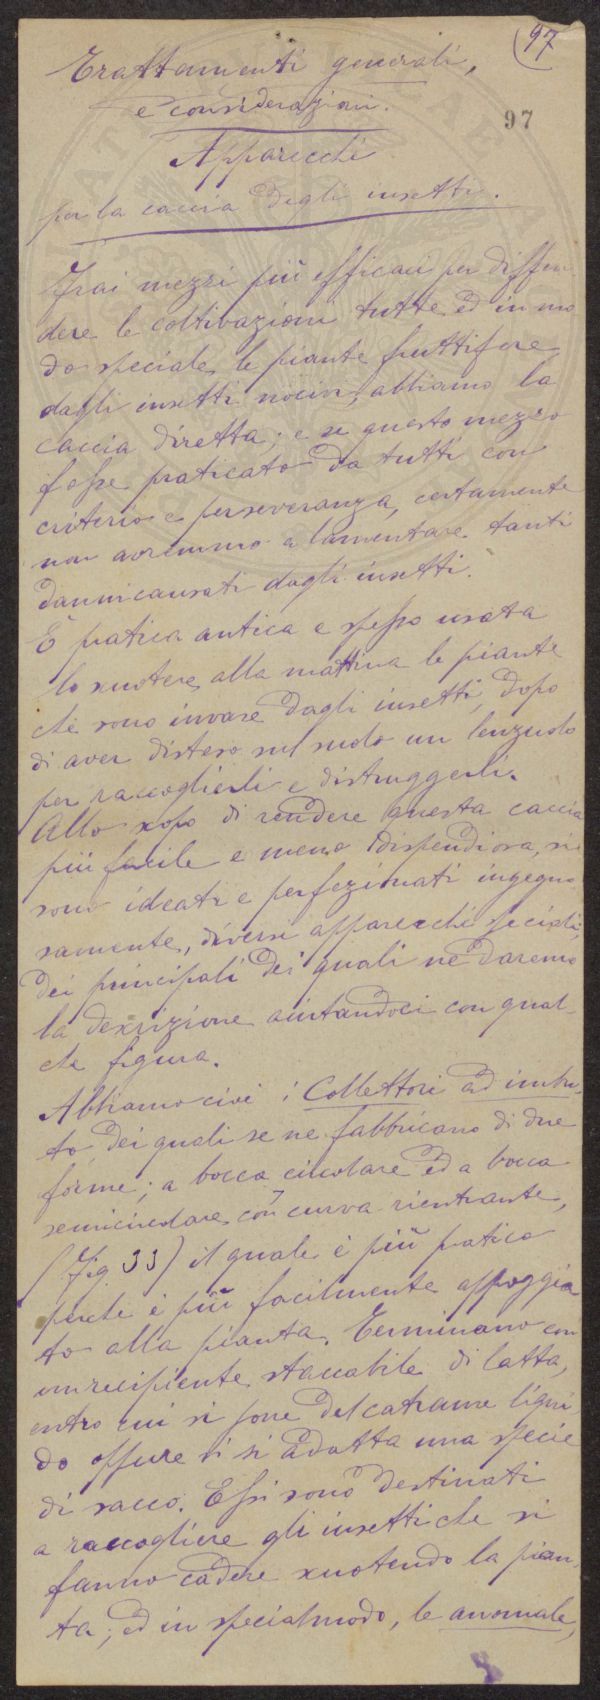 97
Trattamenti generali,
e considerazioni.
97
Apparecchi
per la caccia degli insetti.
Frai mezzi più efficaci per diffen-
dere le coltivazioni tutte ed in mo
do speciale le piante fruttifere
dagli insetti nocivi, abbiamo la
caccia diretta; e se questo mezzo
fosse praticato da tutti con
criterio e perseveranza, certamente
non avremmo a lamentare tanti
danni causati dagli insetti.
È pratica antica e spesso usata
lo scuotere alla mattina le piante
che sono invase dagli insetti, dopo
di aver disteso sul suolo un lenzuolo
per raccoglierli e distruggerli.
Allo scopo di rendere questa caccia
più facile e meno dispendiosa, si
sono ideati e perfezionati ingegno
samente, diversi apparecchi speciali,
dei principali dei quali ne daremo
la descrizione aiutandoci con qual-
che figura.
Abbiamo cioè i Collettori ad imbu-
to, dei quali se ne fabbricano di due
forme; a bocca circolare ed a bocca
semicircolare con curva rientrante,
(Fig 33) il quale è più pratico
perchè è più facilmente appoggia
to alla pianta. Terminano con
un recipiente staccabile di latta,
entro cui si pone del catrame liqui
do oppure vi si adatta una specie
di sacco. Essi sono destinati
a raccogliere gli insetti che si
fanno cadere scuotendo la pian-
ta; ed in special modo, le anomale,